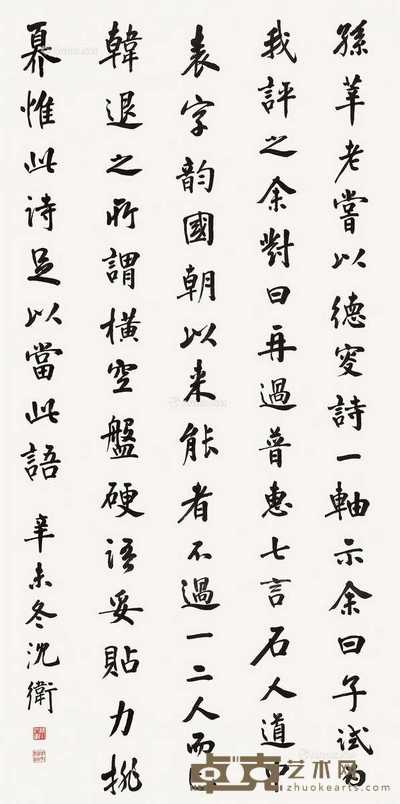 孫莘老嘗以德叟詩一軸示余曰子試為
我評之余對曰再過普惠七言石人道中
表字韻國朝以来能者不過一二人而已
韓退之所謂橫空盤硬語妥貼力排
奡惟此詩足以當此語
辛未冬沈衛
卓克艺术网
zhuokearts.com